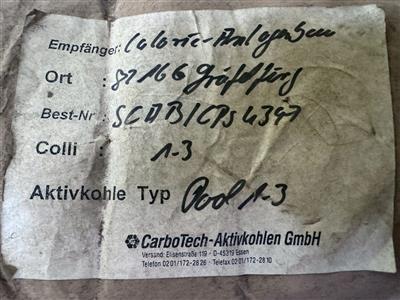 Empfänger: Calorie-Anlagenbau
Ort : 82166 Gräfelfing
Best-Nr : SCDB/CPs 4347
Colli : 1-3
Aktivkohle Typ Pool 1-3
CarboTech-Aktivkohlen GmbH
Versand: Elisenstraße 119 · D-45139 Essen
Telefon 02 01/172-28 26 · Telefax 02 01/172-28 10